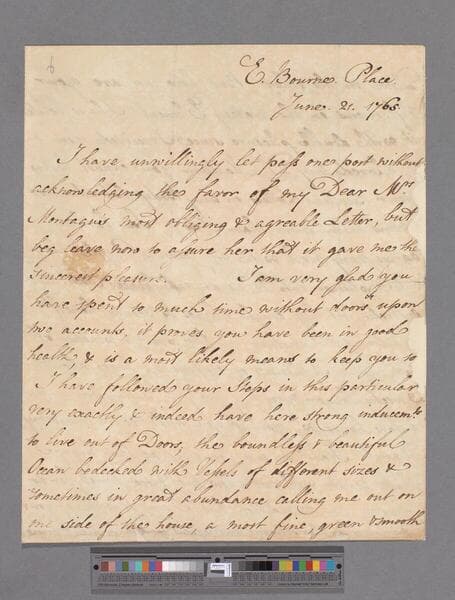 E. Bourne Place
June. 21. 1765.
I have unwillingly let pass one post without
acknowledging the favor of my Dear Mrs.
Montagus most obliging & agreable Letter, but
beg leave now to assure her that it gave me the
sincerest pleasure. I am very glad you
have spent so much time without doors, upon
two accounts, it proves you have been in good
health & is a most likely means to keep you so
I have followed your Steps in this particular
very exactly & indeed have here strong inducemts.
to live out of Doors, the boundless & beautiful
Ocean bedecked with Vessels of different sizes &
sometimes in great abundance calling me out on
one side of the house, a most fine, green & smooth